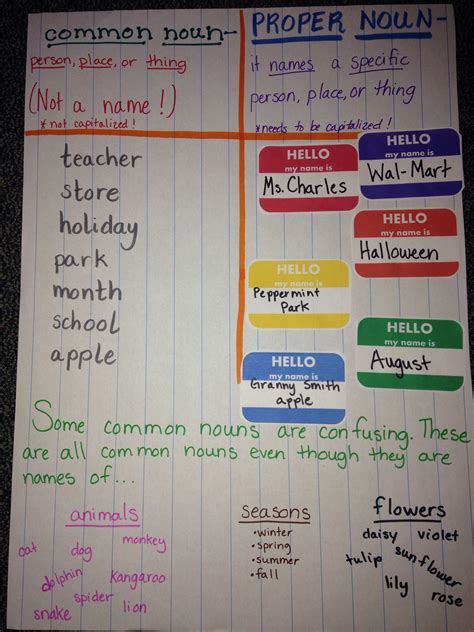 common noun-
person, place, or thing
(Not a name!)
*not capitalized!
PROPER NOUN-
it names a specific
person, place, or thing
*needs to be capitalized!
teacher
store
holiday
park
month
school
apple
HELLO
my name is
Ms. Charles
HELLO
my name is
Wal-Mart
HELLO
my name is
Halloween
HELLO
my name is
Peppermint
Park
HELLO
my name is
August
HELLO
my name is
Granny Smith
apple
Some common nouns are confusing. These
are all common nouns even though they are
names of...
animals
cat dog monkey
dolphin kangaroo
spider
snake lion
seasons
•winter
•spring
•summer
•fall
flowers
daisy violet
tulip sunflower
lily rose